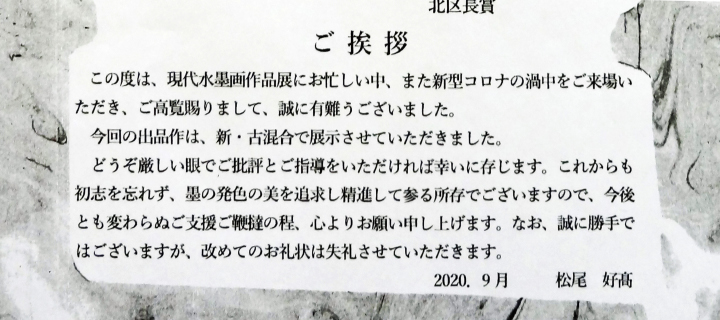 北区長賞
ご挨拶
この度は、現代水墨画作品展にお忙しい中、また新型コロナの渦中をご来場い
ただき、ご高覧賜りまして、誠に有難うございました。
今回の出品作は、新・古混合で展示させていただきました。
どうぞ厳しい眼でご批評とご指導をいただければ幸いに存じます。これからも
初志を忘れず、墨の発色の美を追求し精進して参る所存でございますので、今後
とも変わらぬご支援ご鞭撻の程、心よりお願い申し上げます。なお、誠に勝手で
はございますが、改めてのお礼状は失礼させていただきます。
2020. 9月 松尾 好髙